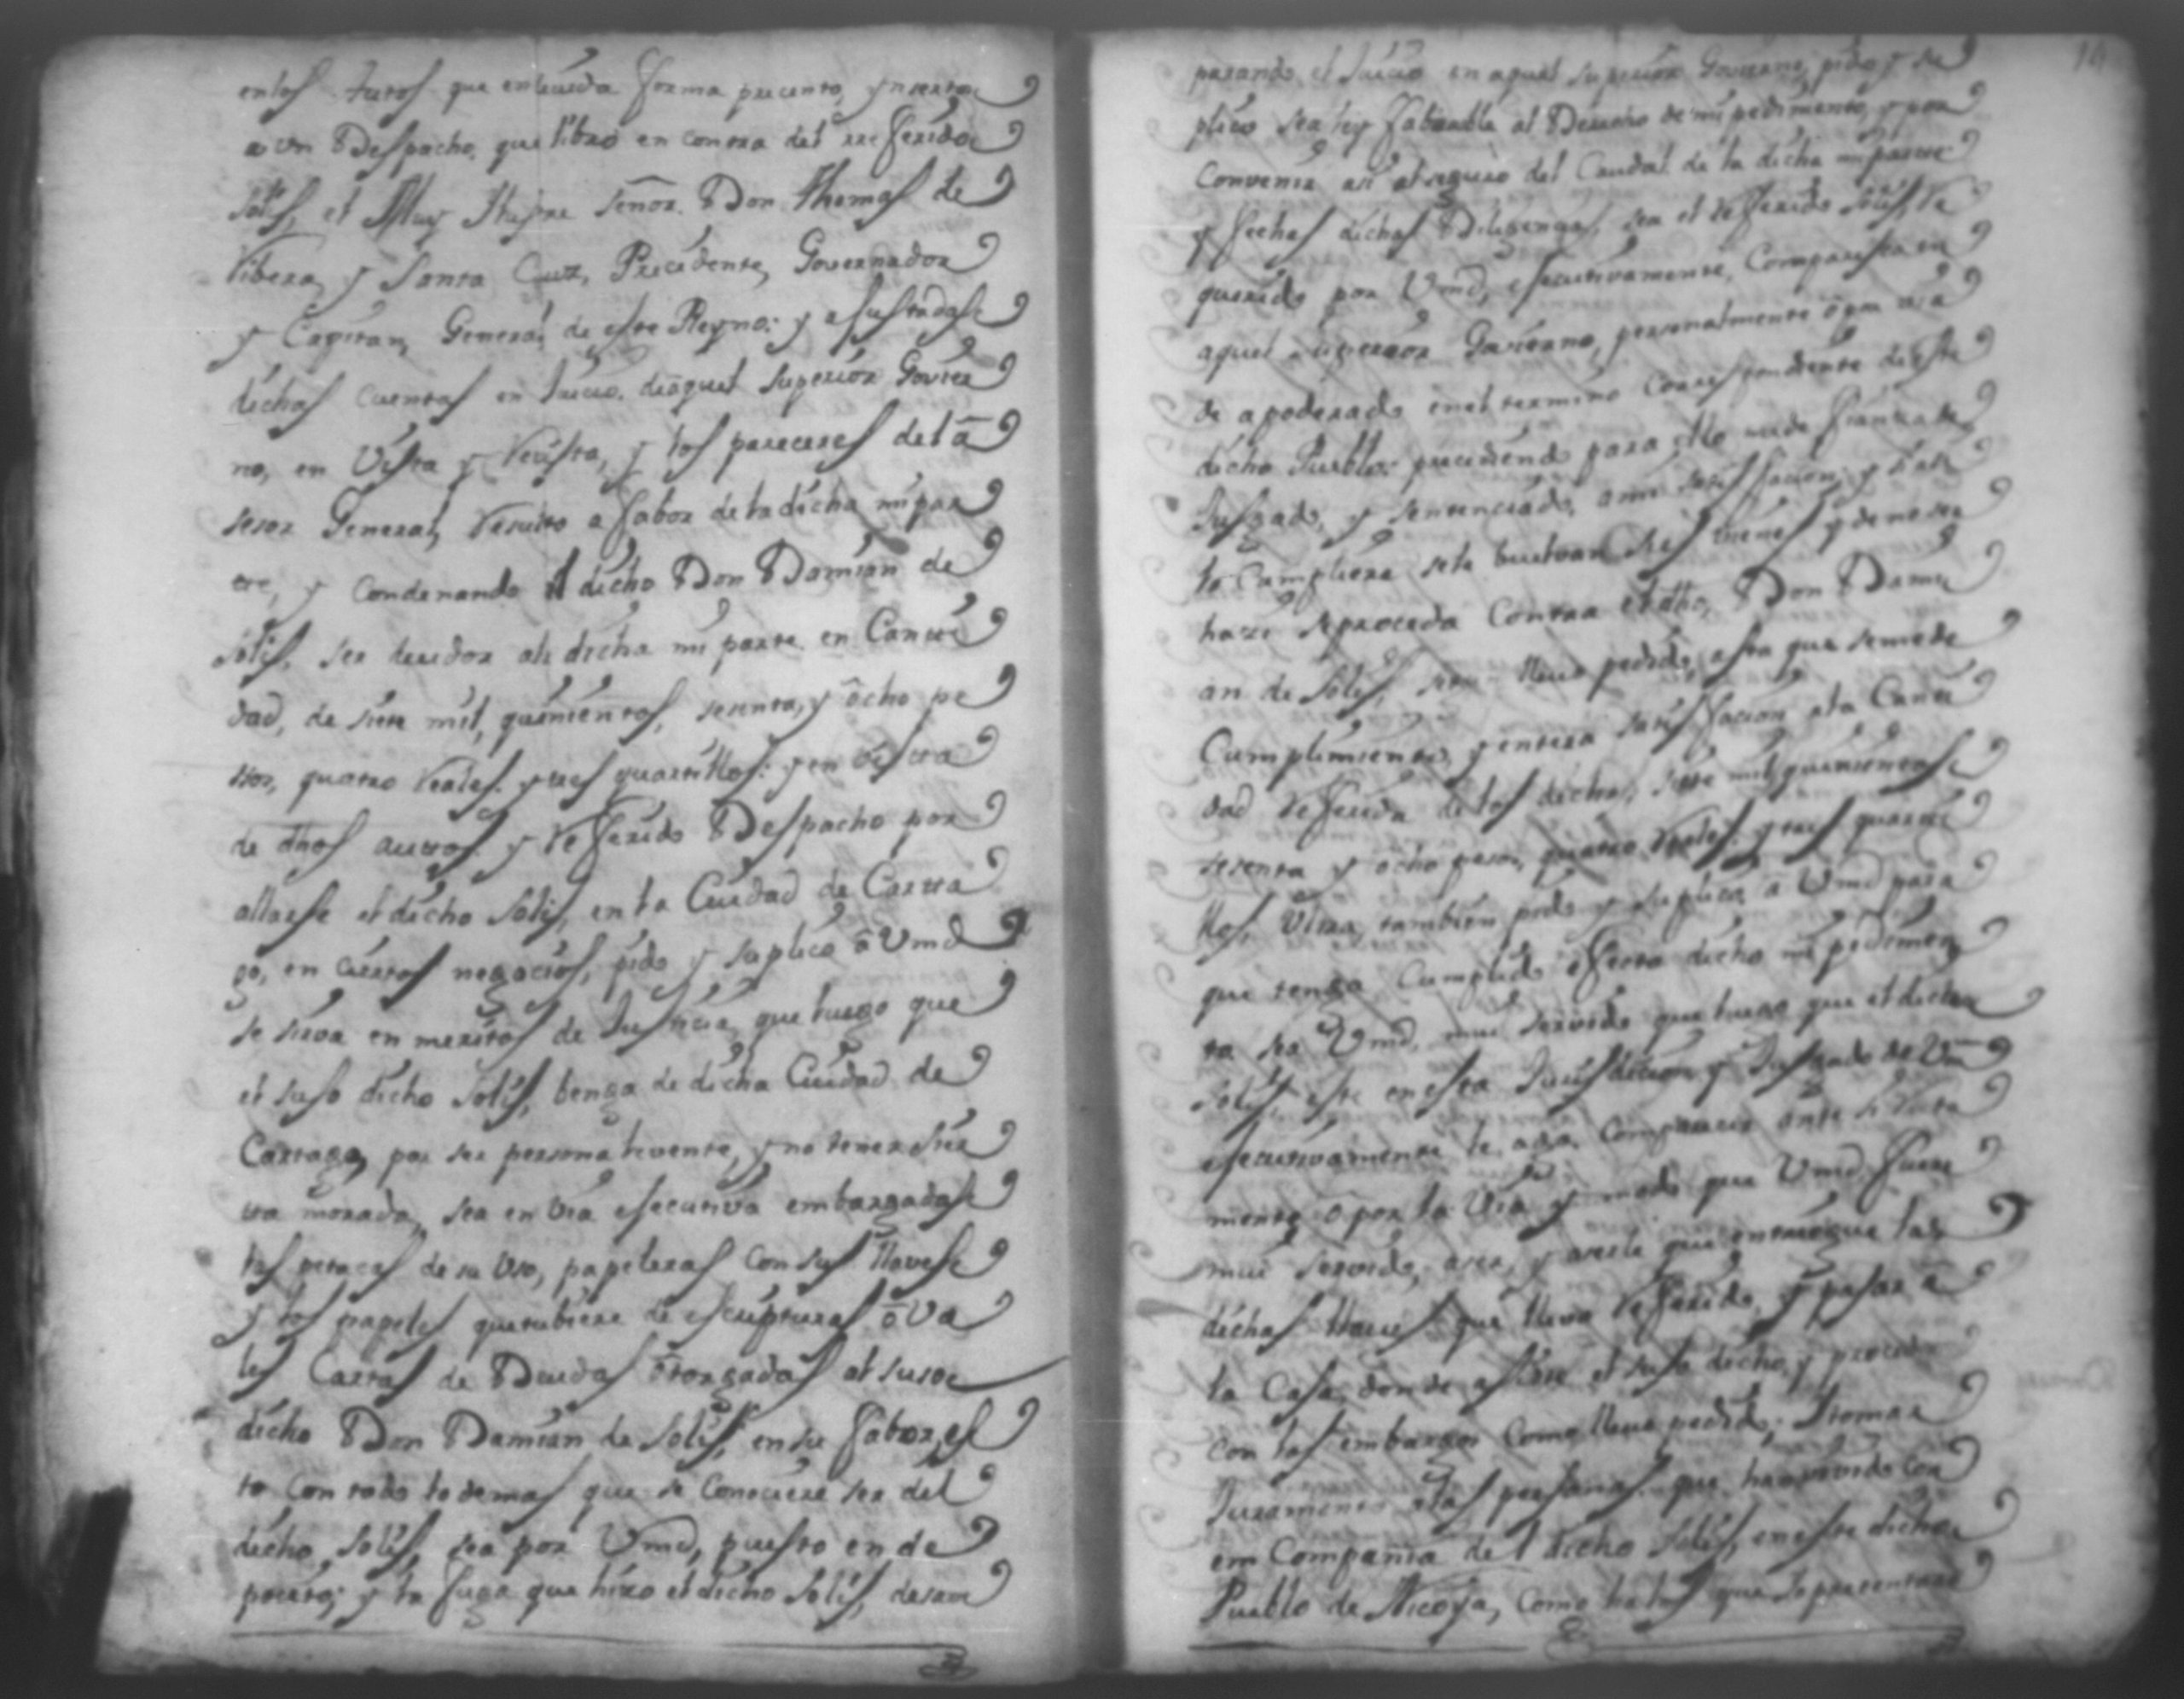 en los Autos que en devida forma precento, ynserto
a un Despacho, que libro en contra del rreferido
Solis, el Muy Ilustre señor Don Thomas de
Ribera, y Santa Cruz, Precidente, Governador
y Capitan, General de este Reyno: y ajustadas
dichas cuentas en Juicio de aquel Superior Govier
no, en Vista y Revista, y los pareceres del a
sesor General, Resulto a fabor de la dicha mi par
te, y condenando al dicho Don Damian de
Solis, ser deudor ala dicha mi parte en Canti
dad, de siete mil, quinientos, sesenta, y ocho pe
sos, quatro Reales y tres quartillos: y en Vista
de dhos autos y Referido Despacho por
allarse el dicho Solis, en la Ciudad de Carta
go, en ciertos negocios, pido y suplico a Vmd
se sirva en meritos de Justicia, que luego que
el suso dicho Solis, benga de dicha Ciudad de
Cartago, por ser persona, y no tener
morada, sea en via esecutiva embargadas
las petacas de su Uso, papeleras con sus llaves
y los papeles que tubiere de escripturas o Va
les Cartas de Deudas otorgadas al suso
dicho Don Damian de Solis, en su fabor, es
to con todo lo demas que se Conociere ser del
dicho Solis, sea por Vmd, puesto en de
posito; y la fuga que hizo el dicho Solis, desam
14
parando el Juicio en aquel superior Govierno, pido y su
plico sea ley faborable al Derecho de mi pedimento, y por
Convenir asi al seguro del Caudal de la dicha mi parte
y fechas dichas Diligencias, sea el Referido Solis, Re
querido por Vmd, esecutivamente, Comparesca en
aquel superior Govierno, personalmente o por via
de apoderado en el termino Correspondiente de este
dicho Pueblo: precediendo para ello fianza de
Jusgado, y sentenciado, a mi satisfacion, y si asi
lo Cumpliere se le buelvan sus bienes y de no ser
hazi se proceda Contra el dho, Don Dami
an de Solis, llevo pedido, asta que se me de
Cumplimiento, y entera satisfacion ala Canti
dad Referida de los dichos, siete mil quinientos
sesenta y ocho pesos, quatro Reales y tres quarti
llos, tambien pido y suplico a Vmd para
que tenga Cumplido efecto dicho mi pedimen
to sea Vmd, mui servido que luego que el dicho
Solis, este en esta Jurisdicion y Jusgado de Vm
esecutivamente le aga Comparecer ante si
mente o por la Via y modo que Vmd fuere
mui servido, y que entregue las
dichas llaves que llevo Referido, y pasar a
la Casa donde asiste el suso dicho, y proceder
con los embargos Como llevo pedido. Y tomar
Juramento alas personas que han vivido con
em Compañia del dicho Solis, en este dicho
Pueblo de Nicoya, Como que lo precentare